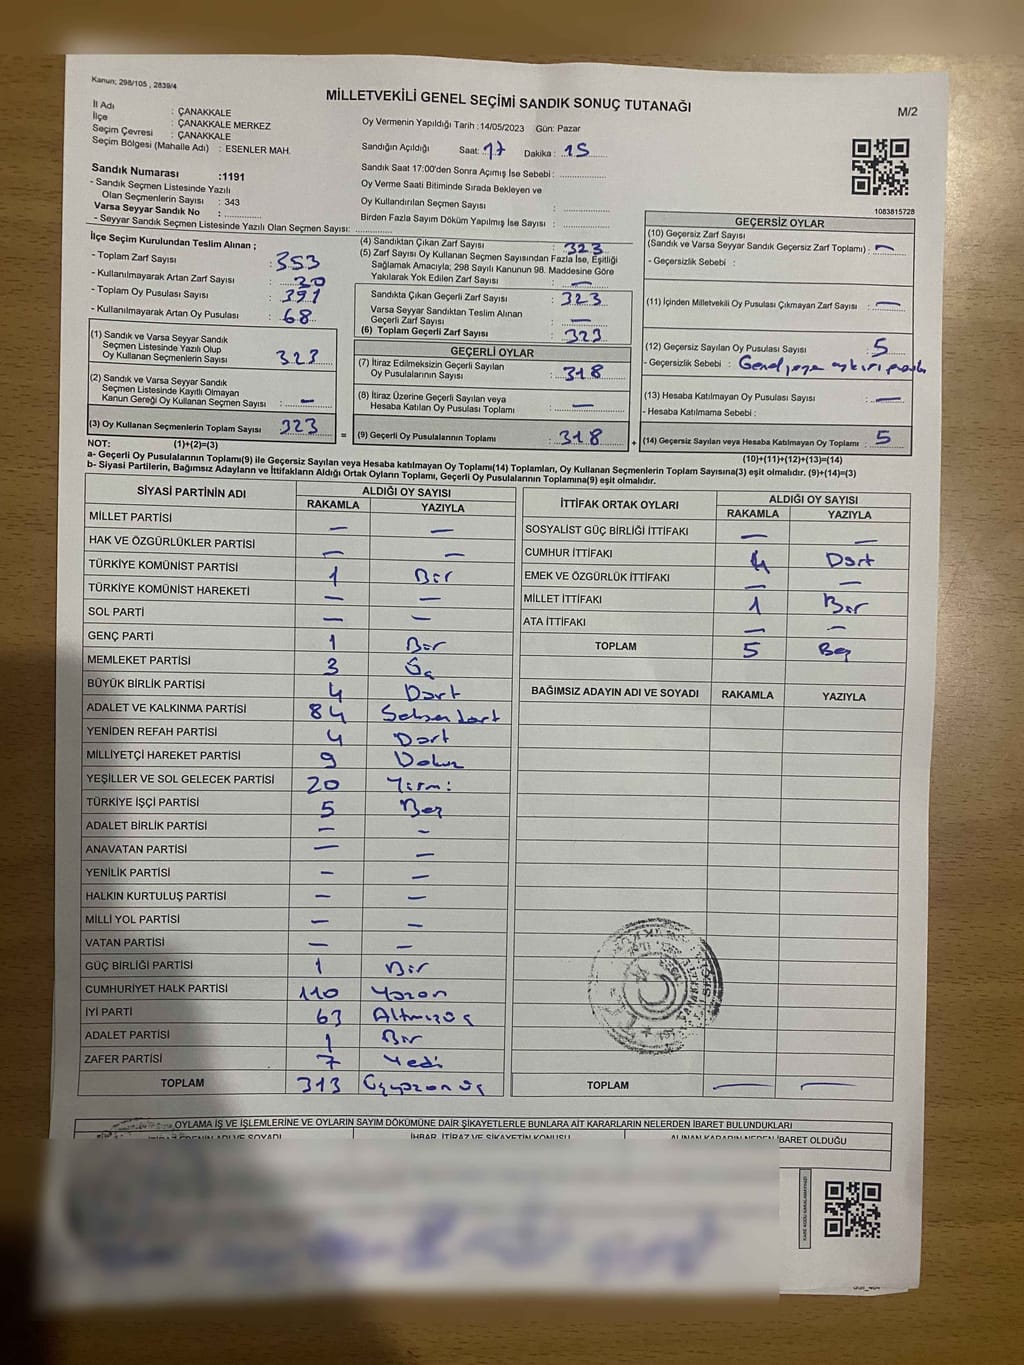 Kanun; 298/105 , 2839/4
MİLLETVEKİLİ GENEL SEÇİMİ SANDIK SONUÇ TUTANAĞI
M/2
İl Adı : ÇANAKKALE
İlçe : ÇANAKKALE MERKEZ
Seçim Çevresi : ÇANAKKALE
Seçim Bölgesi (Mahalle Adı) : ESENLER MAH.
Sandık Numarası :1191
- Sandık Seçmen Listesinde Yazılı
Olan Seçmenlerin Sayısı : 343
Varsa Seyyar Sandık No :
- Seyyar Sandık Seçmen Listesinde Yazılı Olan Seçmen Sayısı:
Oy Vermenin Yapıldığı Tarih :14/05/2023 Gün: Pazar
Sandığın Açıldığı Saat: 17 Dakika : 15
Sandık Saat 17:00'den Sonra Açımış İse Sebebi :
Oy Verme Saati Bitiminde Sırada Bekleyen ve
Oy Kullandırılan Seçmen Sayısı :
Birden Fazla Sayım Döküm Yapılmış İse Sayısı :
1083815728
İlçe Seçim Kurulundan Teslim Alınan ;
- Toplam Zarf Sayısı : 353
- Kullanılmayarak Artan Zarf Sayısı : 30
- Toplam Oy Pusulası Sayısı : 391
- Kullanılmayarak Artan Oy Pusulası : 68
(1) Sandık ve Varsa Seyyar Sandık
Seçmen Listesinde Yazılı Olup
Oy Kullanan Seçmenlerin Sayısı : 323
(2) Sandık ve Varsa Seyyar Sandık
Seçmen Listesinde Kayıtlı Olmayan
Kanun Gereği Oy Kullanan Seçmen Sayısı : —
(3) Oy Kullanan Seçmenlerin Toplam Sayısı 323
(4) Sandıktan Çıkan Zarf Sayısı : 323
(5) Zarf Sayısı Oy Kullanan Seçmen Sayısından Fazla İse, Eşitliği
Sağlamak Amacıyla; 298 Sayılı Kanunun 98. Maddesine Göre
Yakılarak Yok Edilen Zarf Sayısı : —
Sandıkta Çıkan Geçerli Zarf Sayısı : 323
Varsa Seyyar Sandıktan Teslim Alınan
Geçerli Zarf Sayısı : —
(6) Toplam Geçerli Zarf Sayısı : 323
GEÇERLİ OYLAR
(7) İtiraz Edilmeksizin Geçerli Sayılan
Oy Pusulalarının Sayısı : 318
(8) İtiraz Üzerine Geçerli Sayılan veya
Hesaba Katılan Oy Pusulası Toplamı : —
= (9) Geçerli Oy Pusulalarının Toplamı : 318
GEÇERSİZ OYLAR
(10) Geçersiz Zarf Sayısı
(Sandık ve Varsa Seyyar Sandık Geçersiz Zarf Toplamı) : —
- Geçersizlik Sebebi :
(11) İçinden Milletvekili Oy Pusulası Çıkmayan Zarf Sayısı : —
(12) Geçersiz Sayılan Oy Pusulası Sayısı : 5
- Geçersizlik Sebebi :
(13) Hesaba Katılmayan Oy Pusulası Sayısı : —
- Hesaba Katılmama Sebebi :
+ (14) Geçersiz Sayılan veya Hesaba Katılmayan Oy Toplamı : 5
NOT: (1)+(2)=(3)
(10)+(11)+(12)+(13)=(14)
a- Geçerli Oy Pusulalarının Toplamı(9) ile Geçersiz Sayılan veya Hesaba katılmayan Oy Toplamı(14) Toplamları, Oy Kullanan Seçmenlerin Toplam Sayısına(3) eşit olmalıdır. (9)+(14)=(3)
b- Siyasi Partilerin, Bağımsız Adayların ve İttifakların Aldığı Ortak Oyların Toplamı, Geçerli Oy Pusulalarının Toplamına(9) eşit olmalıdır.
SİYASİ PARTİNİN ADI ALDIĞI OY SAYISI
RAKAMLA YAZIYLA
MİLLET PARTİSİ — —
HAK VE ÖZGÜRLÜKLER PARTİSİ — —
TÜRKİYE KOMÜNİST PARTİSİ 1 Bir
TÜRKİYE KOMÜNİST HAREKETİ — —
SOL PARTİ — —
GENÇ PARTİ 1 Bir
MEMLEKET PARTİSİ 3 Üç
BÜYÜK BİRLİK PARTİSİ 4 Dört
ADALET VE KALKINMA PARTİSİ 84 Seksendört
YENİDEN REFAH PARTİSİ 4 Dört
MİLLİYETÇİ HAREKET PARTİSİ 9 Dokuz
YEŞİLLER VE SOL GELECEK PARTİSİ 20 Yirmi
TÜRKİYE İŞÇİ PARTİSİ 5 Beş
ADALET BİRLİK PARTİSİ — —
ANAVATAN PARTİSİ — —
YENİLİK PARTİSİ — —
HALKIN KURTULUŞ PARTİSİ — —
MİLLİ YOL PARTİSİ — —
VATAN PARTİSİ — —
GÜÇ BİRLİĞİ PARTİSİ 1 Bir
CUMHURİYET HALK PARTİSİ 110 Yüzon
İYİ PARTİ 63 Altmışüç
ADALET PARTİSİ 1 Bir
ZAFER PARTİSİ 7 Yedi
TOPLAM 313 Üçyüzonüç
İTTİFAK ORTAK OYLARI ALDIĞI OY SAYISI
RAKAMLA YAZIYLA
SOSYALİST GÜÇ BİRLİĞİ İTTİFAKI — —
CUMHUR İTTİFAKI 4 Dört
EMEK VE ÖZGÜRLÜK İTTİFAKI — —
MİLLET İTTİFAKI 1 Bir
ATA İTTİFAKI — —
TOPLAM 5 Beş
BAĞIMSIZ ADAYIN ADI VE SOYADI RAKAMLA YAZIYLA
TOPLAM — —
OYLAMA İŞ VE İŞLEMLERİNE VE OYLARIN SAYIM DÖKÜMÜNE DAİR ŞİKAYETLERLE BUNLARA AİT KARARLARIN NELERDEN İBARET BULUNDUKLARI
İTİRAZ EDENİN ADI VE SOYADI İHBAR, İTİRAZ VE ŞİKAYETİN KONUSU ALINAN KARARIN NEDEN İBARET OLDUĞU